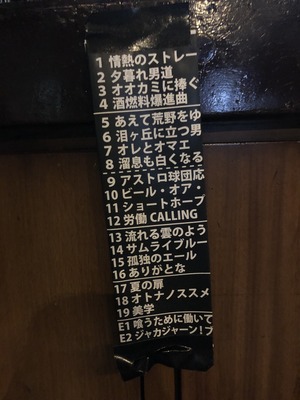 1 情熱のストレー
2 夕暮れ男道
3 オオカミに捧ぐ
4 酒燃料爆進曲
5 あえて荒野をゆ
6 泪ヶ丘に立つ男
7 オレとオマエ
8 溜息も白くなる
9 アストロ球団応
10 ビール・オア・
11 ショートホープ
12 労働 CALLING
13 流れる雲のよう
14 サムライブルー
15 孤独のエール
16 ありがとな
17 夏の扉
18 オトナノススメ
19 美学
E1 喰うために働いて
E2 ジャカジャーン!ブ